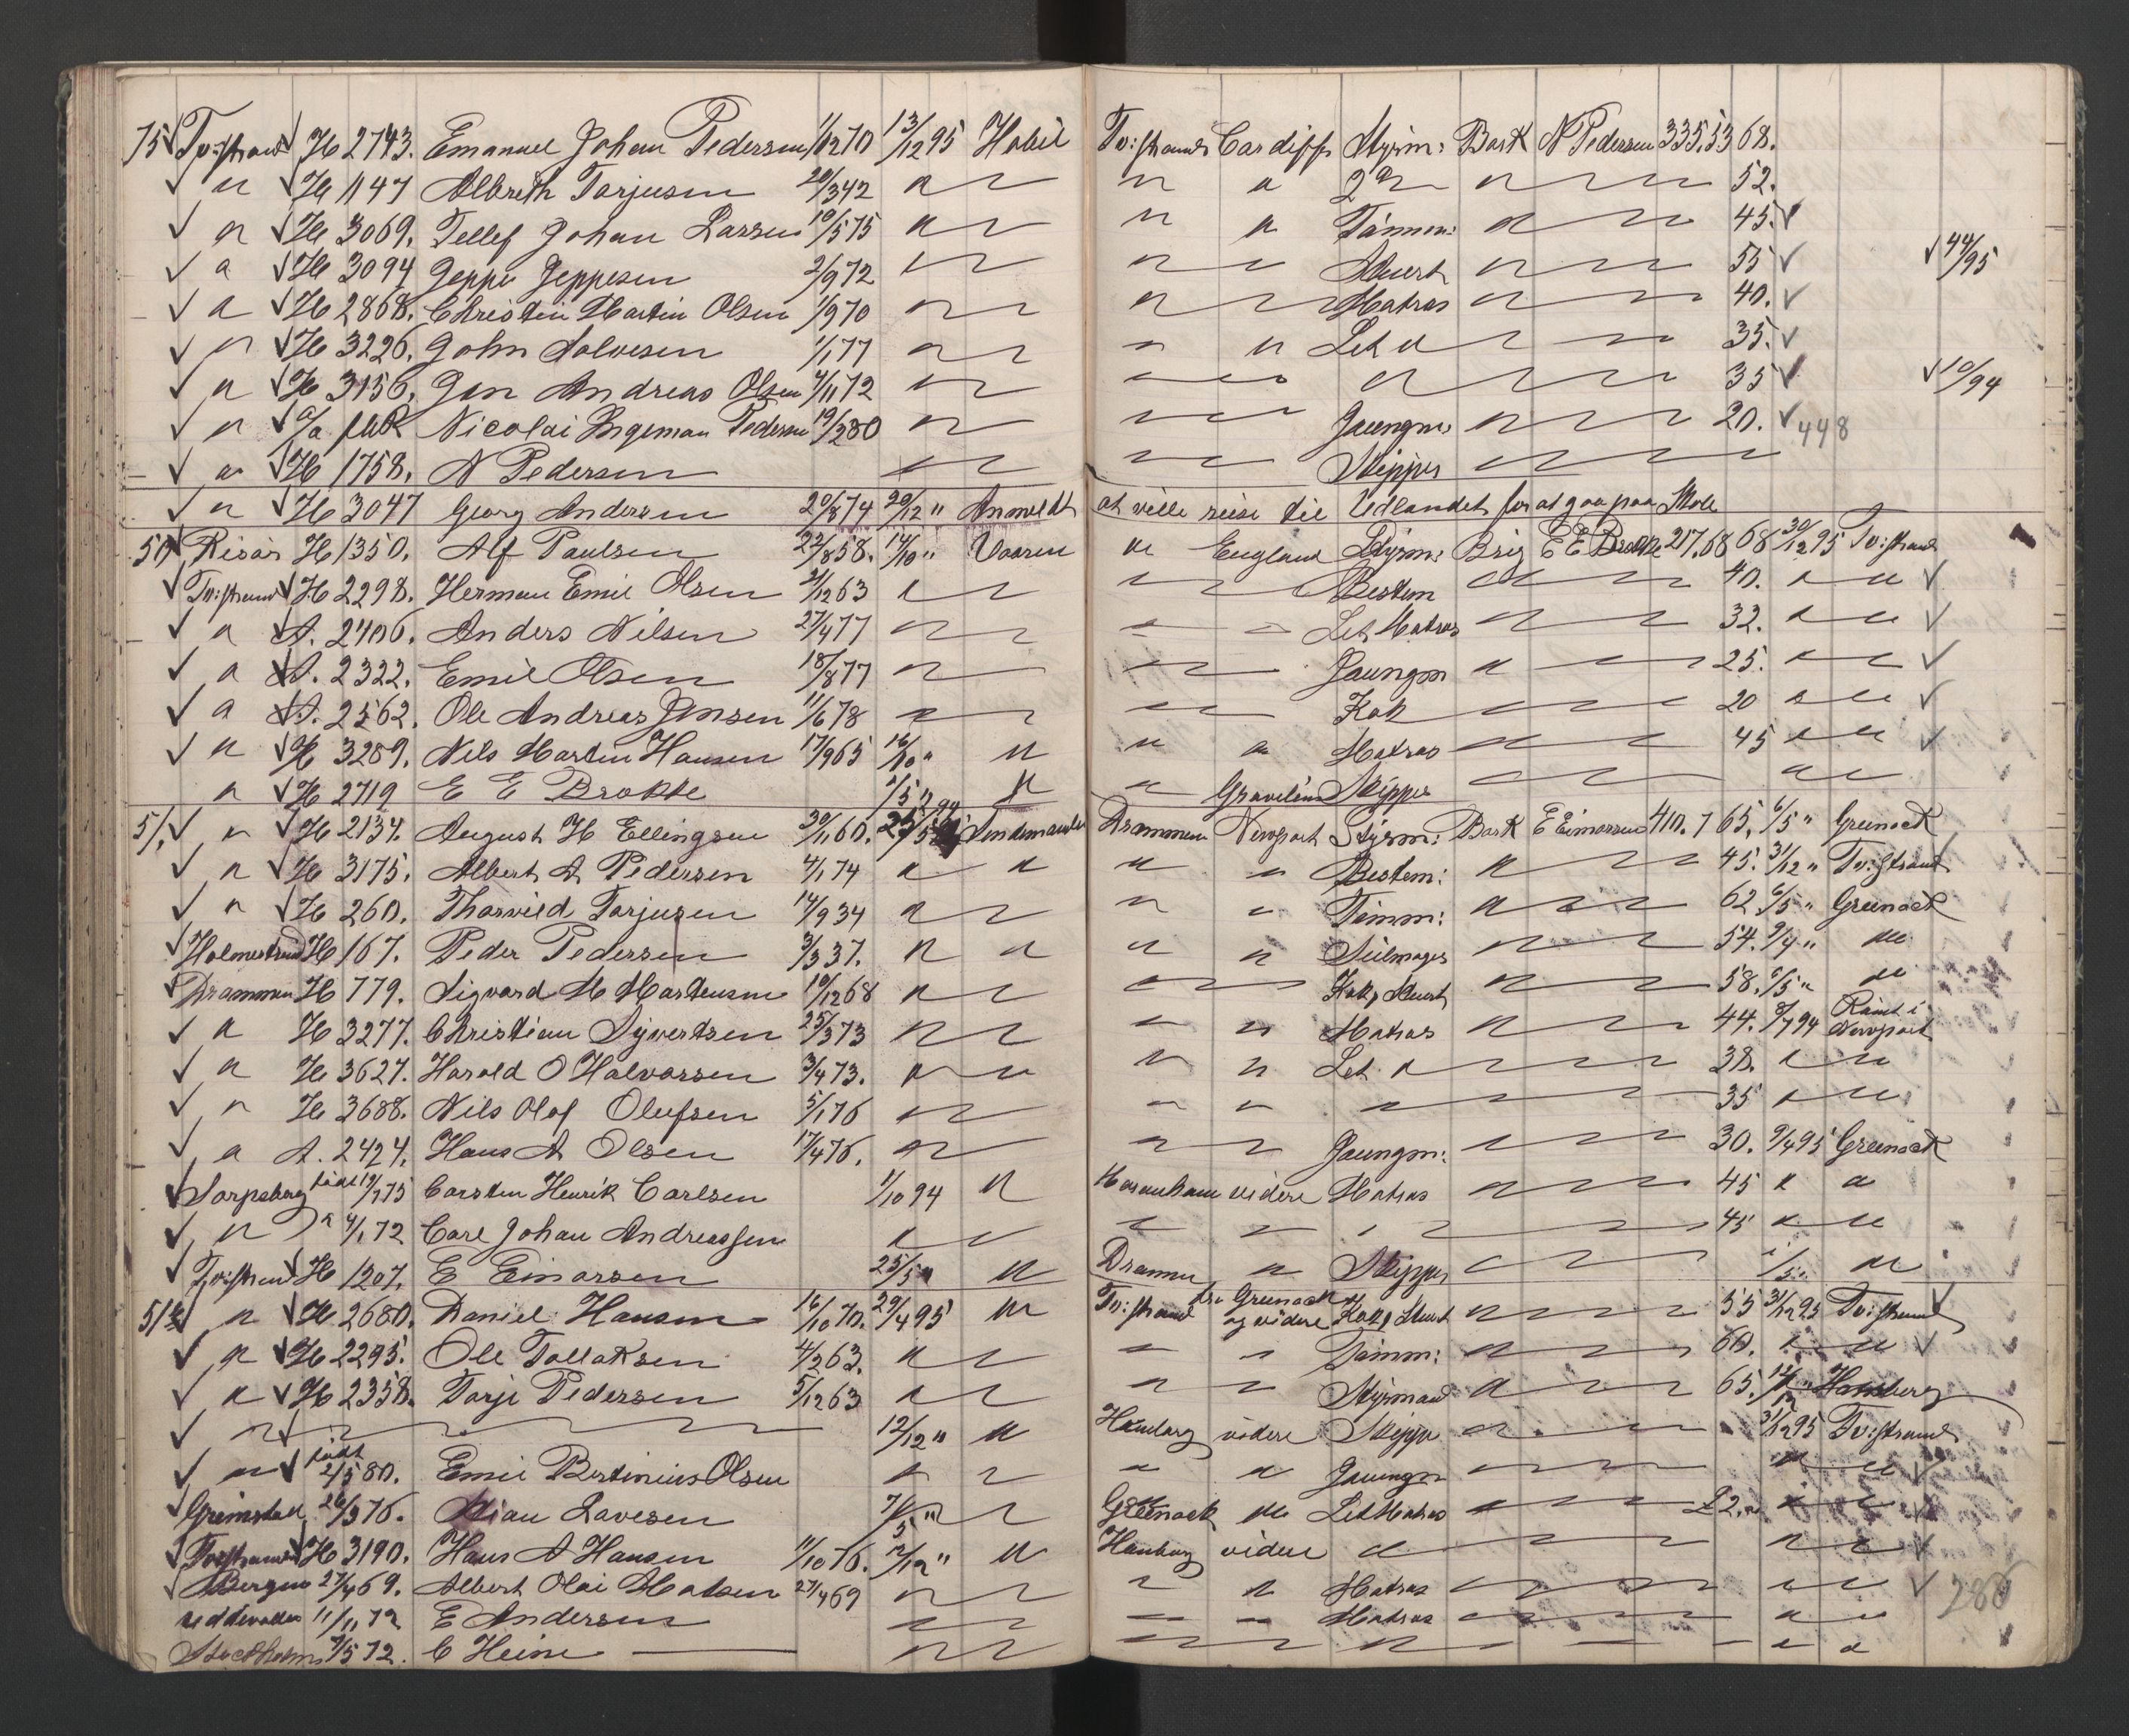 75 Tv:strand H 2743. Emanuel Johan Pedersen 1/12 70 13/12 95 Habil Tv:strand Cardiff Styrm: Bark N Pedersen 335,53 68.
" H 1147 Albreth Tarjusen 20/3 42 " " " 2d " 52.
" H 3069. Tellef Johan Larsen 10/5 75 " " " Tømmm: " 45.
" H 3094 Jeppe Jeppesen 2/9 72 " " " Stuert " 55 44/95
" H 2868. Christen Martin Olsen 1/9 70 " " " Matros " 40.
" H 3226. John Salvesen 1/1 77 " " " Let " 35.
" H 3156. Jen Andreas Olsen 4/11 72 " " " " 35 10/94
" Nicolai Ingeman Pedersen 19/2 80 " " " Jungm: " 20. 448
" H 1758. N Pedersen " " Skipper "
" H 3047 Georg Andersen 20/8 74 20/12 " Anmeldt at ville reise til Udlandet for at gaa paa Skole
50 Risør H 1350. Alf Paulsen 23/8 58. 14/10 " Vaaren " England Styrm: Brig E E Brokke 217,68 68 30/12 95 Tv:strand
Tv:strand H 2298. Herman Emil Olsen 21/12 63 " " Bestm " 40. " "
" A. 2406. Anders Nilsen 27/4 77 " " " Let Matros " 32. " "
" A. 2322. Emil Olsen 18/8 77 " " Jungm " 25. " "
" A. 2562. Ole Andreas Jensen 11/6 78 " " Kok 20 " "
" H 3289. Nils Martin Hansen 17/9 65 16/10 " " " " Matros " 45 " "
" H 2719 E E Brokke 1/5 " " " Gravelins Skipper " " "
51. " H 2134. August H Ellingsen 30/11 60. Sindsmanden Drammen Newport Styrm: Bark E Einarsen 410.7 65. 6/5 " Greenock
" H 3175. Albert A Pedersen 4/1 74 " " " " Bestm: " 45. 31/12 " Tv:strand
" H 260. Thorvild Tarjusen 14/9 34 " " " Tømm: " 62 6/5 " Greenock
Holmestrand H 167. Peder Pedersen 3/3 37. " " " " Seilmager " 54. 9/4 " "
Drammen H 779. Sigvard M Martensen 10/12 68 " " Kok, Stuert " 58. 6/5 " "
" H 3277. Christian Syvertsen 25/3 73 " " " Matros " 44. 8/7 94 Rømt i Newport
" H 3627. Harald O Halvorsen 3/4 73. " " " " Let " 38. " "
" H 3688. Nils Olof Olufsen 5/1 76 " " " " 35 " "
" A. 2424. Hans A Olsen 17/4 76. " " " Jungm: " 30. 9/4 95 Greenock
Sarpsborg født 19/7 75 Carsten Henrik Carlsen 1/10 94 " videre Matros " 45 " "
" " 4/1 72 Carl Johan Andreassen " " " " 45 " "
Tv:strand H 1207. E Einarsen 25/5 " " Drammen " Skipper " "
51½ " H 2680. Daniel Hansen 16/10 70. 29/4 95 " Tv:strand fra Greenock og videre Kok, Stuert " 55 31/12 95 Tv:strand
" H 2295. Ole Tallaksen 4/2 63. " " " Tømm: " 60. " "
" H 2358. Tarje Pedersen 5/12 63 " " " Styrmand " 65. 12/12 " Hamburg
" " " 12/12 " " Hamburg videre Skipper " 31/12 95 Tv:strand
" født 2/5 80. Emil Bertinius Olsen " " " Jungm " " "
Grimstad 26/3 76. Stian Lavesen 7/5 " " Greenock " Let Matros " £2. " "
Tv:strand H 3190. Hans A Hansen 11/10 76. 12/12 " " Hamburg videre " " "
Bergen 27/4 69. Albert Olai Madsen 27/4 69 " " " Matros " " " 280
Uddevalla 11/1 72 E Andersen " " " Matros " " "
Stockholm 7/5 72. C Heine " " " " "